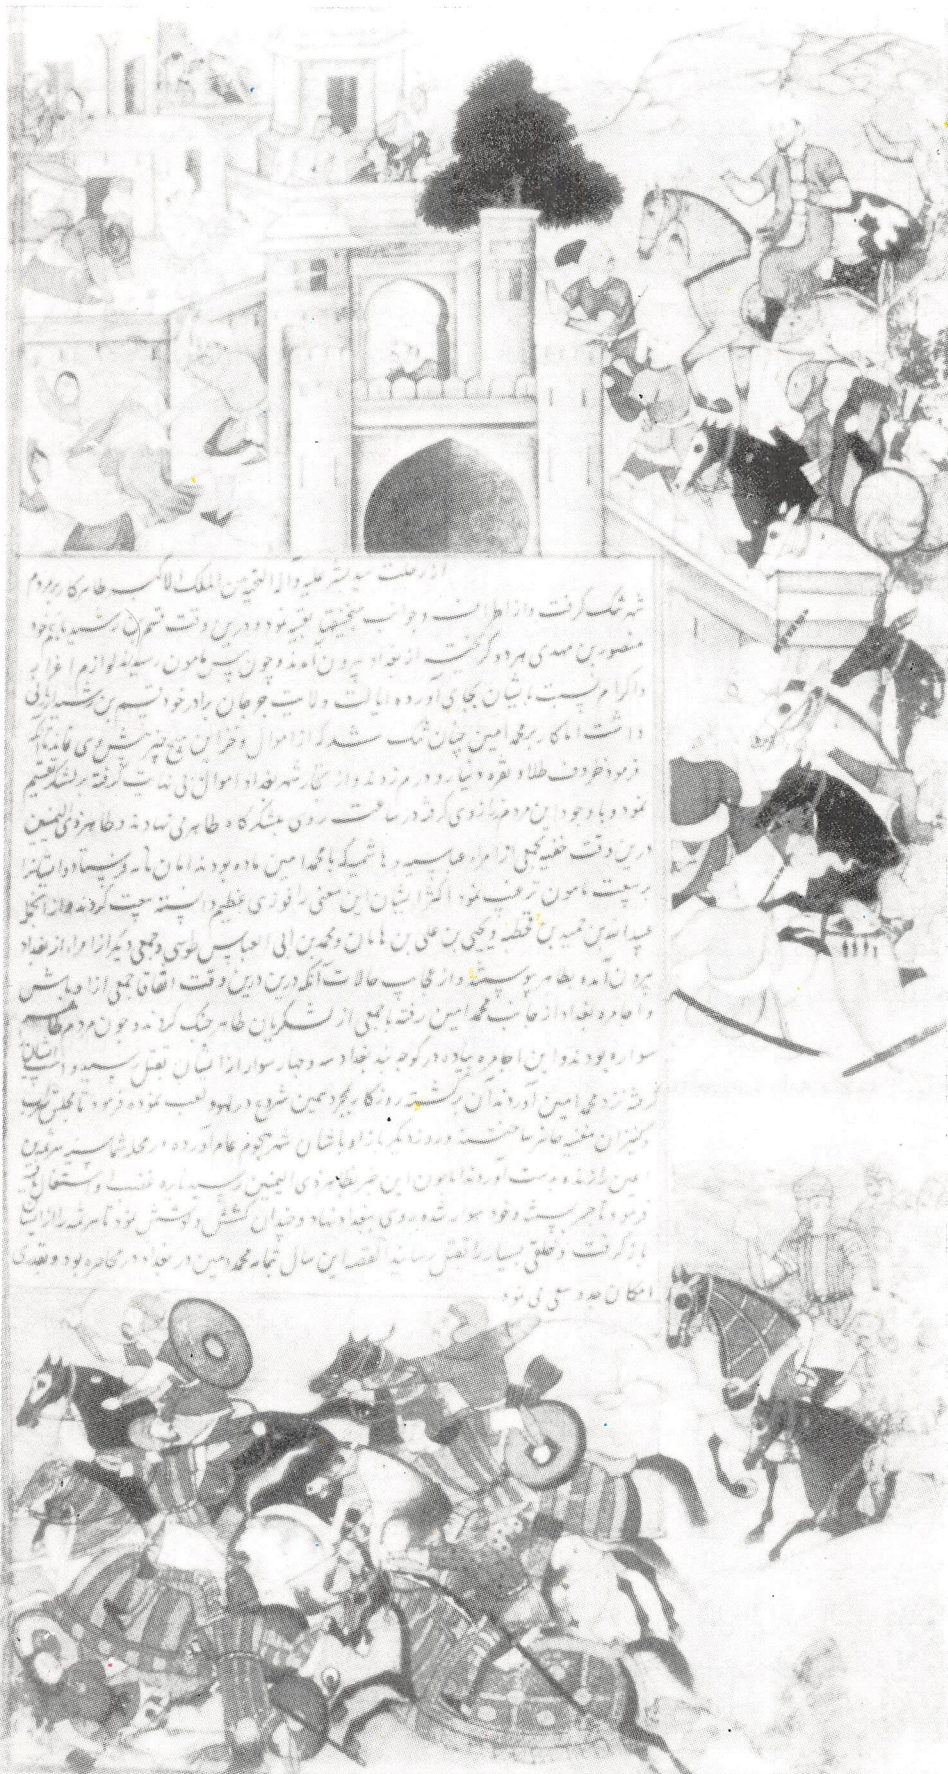 از رحلت سید بشر علیه و آله التحیه من الملک الاکبر طاهر کار بر مردم
شهر تنگ گرفت و از اطراف و جوانب منجنیقها تعبیه نمود و درین وقت قسم بن رشید با عم خود
منصور بن مهدی هر دو گریخته از بغداد بیرون آمدند و چون پیش مامون رسیدند لوازم اعزاز
و اکرام نسبت بایشان بجای آورده ایالت ولایت جرجان برادر خود قسیم بن رشید ارزانی
داشت اما کار بر محمد امین چنان تنگ شد که از اموال و خزاین هیچ چیز پیش وی نماند تا آنکه
فرمود ظروف طلا و نقره دینار و درم زدند و از تجار شهر بغداد اموال بی نهایت گرفته بر لشکر تقسیم
نمود و با وجود این مردم از وی گرفته در ساعت روی بلشکرگاه طاهر می نهادند و طاهر ذی الیمینین
درین وقت خفیه بجمعی از امراء عباسیه و هاشمیه که با محمد امین مانده بودند امان نامه فرستاد و ایشانرا
بر بیعت مامون ترغیب نمود اکثر ایشان این معنی را فوزی عظیم دانسته بیعت کردند و از انجمله
عبدالله بن حمید بن قحطبه و یحیی بن علی بن ماهان و محمد بن ابی العباس طوسی و جمعی دیگر از امراء از بغداد
بیرون آمده بطاهر پیوستند و از عجایب حالات آنکه درین درین وقت اتفاق جمعی از اوباش
و اجامره بغداد از جانب محمد امین رفته با جمعی از لشکریان طاهر جنگ کردند و چون مردم طاهر همه
سواره بودند و این اجامره پیاده در کوچه بند بغداد سه چهار سوار از ایشان بقتل رسید و اسپ ایشان
گرفته نزد محمد امین آوردند آن برگشته روزگار بمجرد همین شروع در لهو و لعب نموده فرمود تا مجلس شراب
و کنیزان مغنیه حاضر ساختند و روز دیگر باز اوباشان شهر هجوم عام آورده در محل شماسیه هرثمه بن
اعین را زنده بدست آوردند مامون این خبر بطاهر ذی الیمینین رسید نایره غضب او اشتعال یافته
فرمود تا جسر بسته و خود سوار شده روی ببغداد نهاد و چندان کشش و کوشش نمود تا هرثمه را از ایشان
باز گرفت و خلقی بسیار را بقتل رسانید القصه این سال تمام محمد امین در بغداد در محاصره بود و بقدر
امکان جد و سعی می نمود